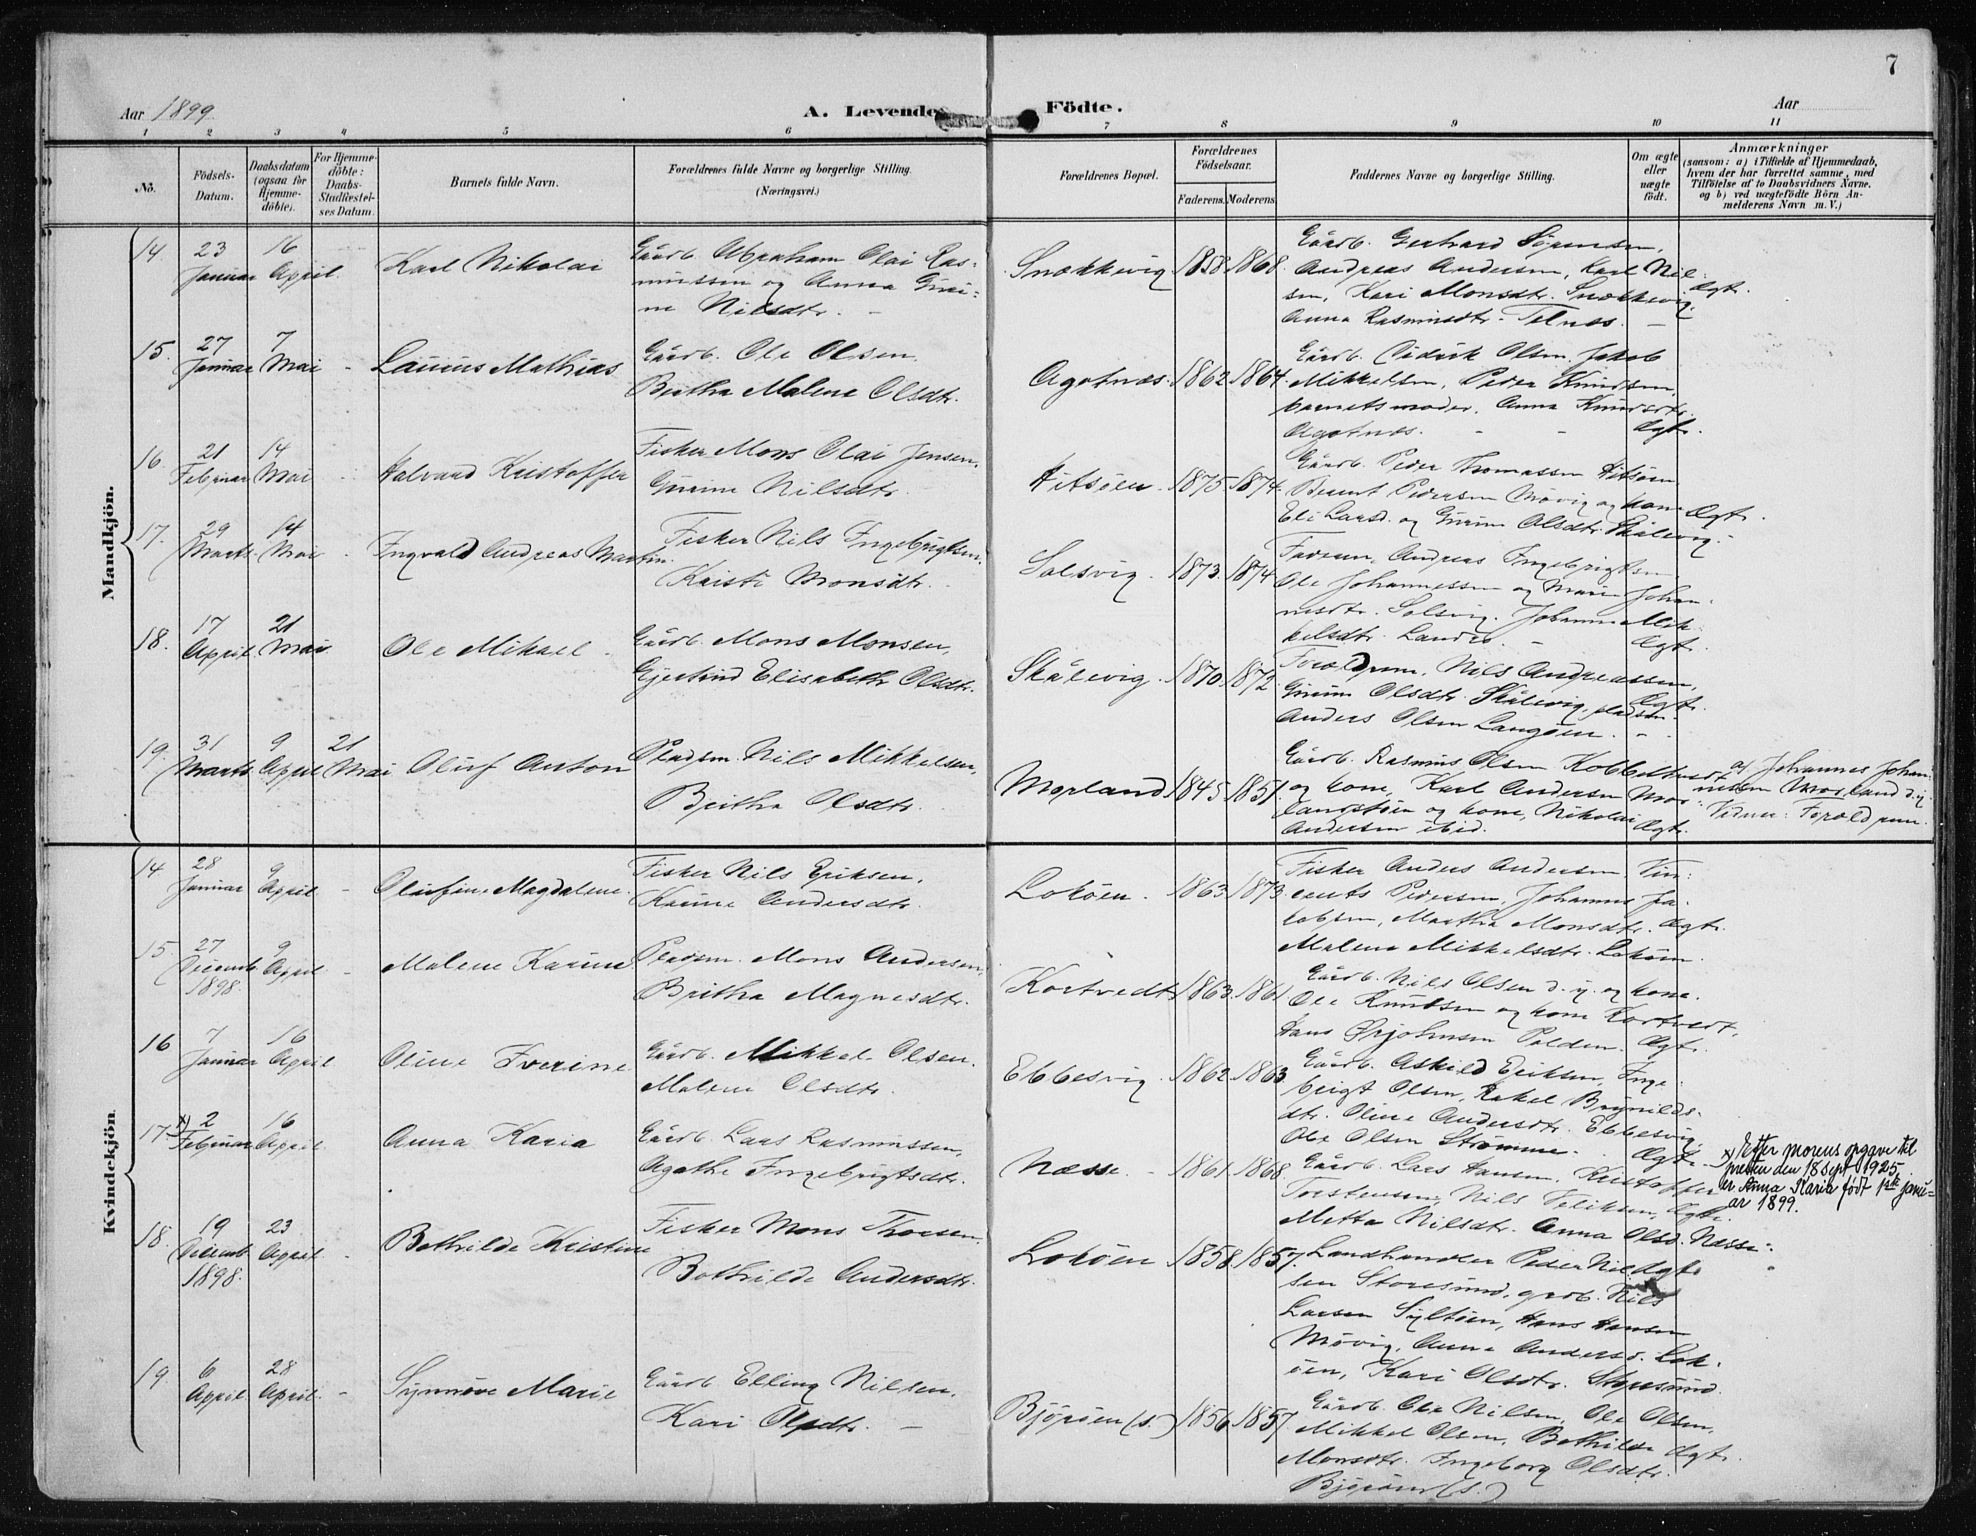 7
Aar 1899
A. Levende Födte.
Aar
1 2 3 4 5 6 7 8 9 10 11
No.
Födsels-
Datum.
Daabsdatum
(ogsaa for
Hjemme-
döbte).
For Hjemme-
döbte:
Daabs-
Stadfæstel-
ses Datum.
Barnets fulde Navn.
Forældrenes fulde Navne og borgerlige Stilling.
(Næringsvei.)
Forældrenes Bopæl.
Forældrenes
Födselsaar.
Faderens. Moderens
Faddernes Navne og borgerlige Stilling.
Om ægte
eller
uægte
født.
Anmærkninger
(saasom: a) i Tilfælde af Hjemmedaab,
hvem der har forrettet samme, med
Tilföielse af to Daabsvidners Navne.
og b) ved uægtefödte Börn An-
melderens Navn m. V.)
Mandkjön.
14. 23 Januar 16 April
Karl Nikolai
Gårdb. Abraham Olai Ras-
mussen og Anna Guri-
ne Nilsdtr. -
Snækkevig 1858 1868
Gårdb. Gerhard Sørensen,
Andreas Andersen, Karl Nil-
sen, Kari Monsdtr. Snekkevig,
Anna Rasmusdtr. Telnæs. -
Ægt.
15. 27 Januar 7 Mai -
Laurus Mathias
Gårdb. Ole Olsen,
Britha Malene Olsdtr.
Agotnæs. 1862 1864.
Gårdb. Didrik Olsen, Jakob
Mikkelsen, Peder Knudsen,
barnets moder, Anna Knudsdtr.
Agotnæs. - -
Ægt.
16. 21 Februar 14 Mai -
Halvard Kristoffer
Fisker Mons Olai Jensen,
Gurine Nilsdtr.
Hitsöen. 1875 1874.
Gårdb. Peder Thomassen Hitsöen
Berent Pedersen Møvig og kone
Eli Larsd. og Gurine Olsdtr. Skålevig.
Ægt.
17. 29 Marts. 14 Mai -
Ingvald Andreas Martin.
Fisker Nils Ingebrigtsen,
Kristi Monsdtr.
Solsvig. 1873. 1874
Faderen, Andreas Ingebrigtsen,
Ole Johannessen og Marie Johan-
nesdtr. Solsvig. Johanna Mik-
kelsdtr. Landro. -
Ægt.
18. 17 April. 21 Mai
Ole Mikael -
Gårdb. Mons Monsen,
Gjertrud Elisabeth Olsdtr.
Skålevig. 1870. 1872.
Forældrene, Nils Andreassen,
Gurine Olsdtr. Skålevig, pladsm.
Anders Olsen Langøen. -
Ægt.
19. 31 Marts 9 April 21 Mai
Oluf Anton
Pladsm. Nils Mikkelsen,
Britha Olsdtr.
Morland 1845 1851.
Gårdb. Rasmus Olsen Kobbeltvedt
og kone, Karl Andersen Mor-
langstøen og kone, Nikolai
Andersen ibid.
Ægt.
af Johannes Johan-
nessen Morland d.y.
Vidner: Forældrene.
Kvindekjön.
14 28 Januar 9 April -
Olufine Magdalene.
Fisker Nils Eriksen,
Karine Andersdtr.
Loköen. 1863 1873.
Fisker Anders Andersen, Vin-
cents Pedersen, Johannes Ja-
kobsen, Martha Monsdtr.
Malena Mikkelsdtr. Loköen.
Ægt.
15. 27 Decemb. 1898. 9 April -
Malene Karine
Pladsm. Mons Andersen
Britha Magnesdtr.
Kortvedt 1863. 1861
Gårdb. Nils Olsen d. y. og kone.
Ole Knudsen og kone Kortvedt,
Hans Ørjohnsen Polden.
Ægt.
16 7 Januar 16 April
Oline Iverine
Gårdb. Mikkel Olsen.
Malene Olsdtr.
Ebbesvig. 1862. 1863.
Gårdb. Askild Eriksen, Inge-
brigt Olsen, Rakel Brynilds-
dtr. Oline Andersdtr. Ebbesvig,
Ole Olsen Strømme.
Ægt.
17. x) 2 Februar 16 April.
Anna Karia
Gårdb. Lars Rasmussen,
Agathe Ingebrigtsdtr.
Næsse. - 1861. 1868.
Gårdb. Lars Hansen, Kristoffer
Torstensen, Nils Feliksen,
Metta Nilsdtr. Anna Olsd. Næsse.
Ægt.
x) Efter morens opgave til
presten den 18 sept 1925
er Anna Karia født 1ste janu-
ar 1899.
18. 19 Decemb. 1898. 23 April -
Bothilde Kristine
Fisker Mons Thoesen,
Bothilde Andersdtr.
Loköen 1858. 1857.
Landhandler Peder Nil-
sen Storesund, grdb. Nils
Larsen Syltöen, Hans Hansen
Møvig, Anna Andersd. Lok-
øen, Kari Olsdtr. Storesund.
Ægt.
19. 6 April. 28 April. -
Synnøve Marie
Gårdb. Elling Nilsen,
Kari Olsdtr. -
Bjørøen (s.) 1856 1857.
Gårdb. Ole Nilsen, Ole Olsen,
Mikkel Olsen, Bothilde
Monsdtr. Ingeborg Olsdtr.
Bjørøen (s.)
Ægt.